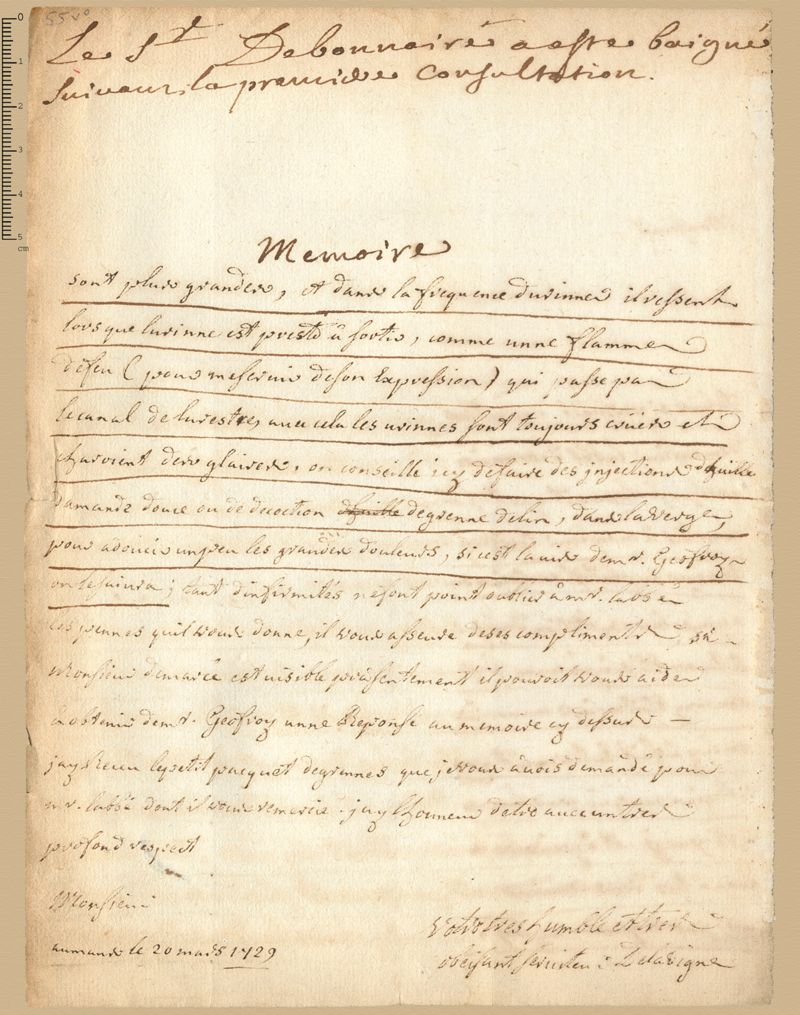 55 v°
Le Sr. Debonnaire a estre baigné
suivant la premiere Consultation.
Memoire
sont plus grandes, et dans la frequence durinner il ressent
lorsque lurinne est preste â sortir, comme unne flamme
defeu ( pour meservir deson Expression ) qui passe par
le canal de lurestre, avec cela les urinnes sont toujours crües et
charient des glaires, on conseille icy defaire des injections dhuille
damande douce ou de decoction dhuille degrenne delin, dans laverge,
pour adoucir unpeu les grandes douleurs, si cest lavis demr. Geofroy
on lesuivra ; tant dinfirmités nefont point oublier â mr. labbé
les pennes quil vous donne, il vous asseure deses compliments, si
Monsieur demarée est visible présentement il pouroit vous aider
â obtenir demr. Geofroy unne Reponse au memoire cy dessus —
jay Receu lepetit pacquet degrennes que jevous avois demandé pour
mr. labbé dont il vous remercie. jay lhonneur detre avec untres
profond respect
Monsieur
aumans le 20 mars 1729
Votre tres humble et tres
obeisant serviteur Delavigne
0
1
2
3
4
5
cm